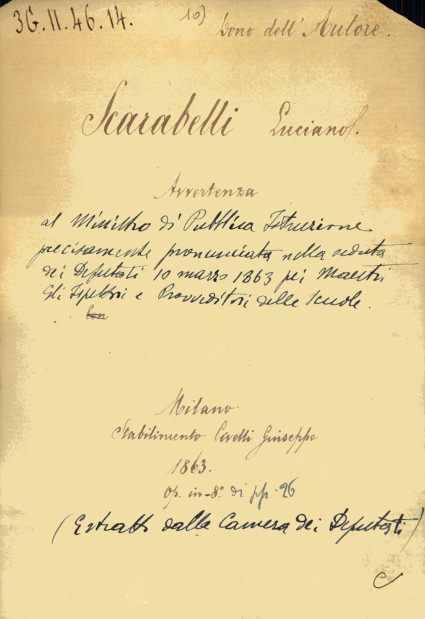 3G.II.46.14.
10) Dono dell'Autore.
Scarabelli Luciano.
Avvertenza
al Ministro di Pubblica Istruzione
precisamente pronunciata nella seduta
dei Deputati 10 marzo 1863 pei Maestri
Gli Ispettori e Provveditori delle Scuole.
Milano
Stabilimento Civelli Giuseppe
1863.
Op. in-8° di pp. 26
(Estratto dalla Camera dei Deputati)